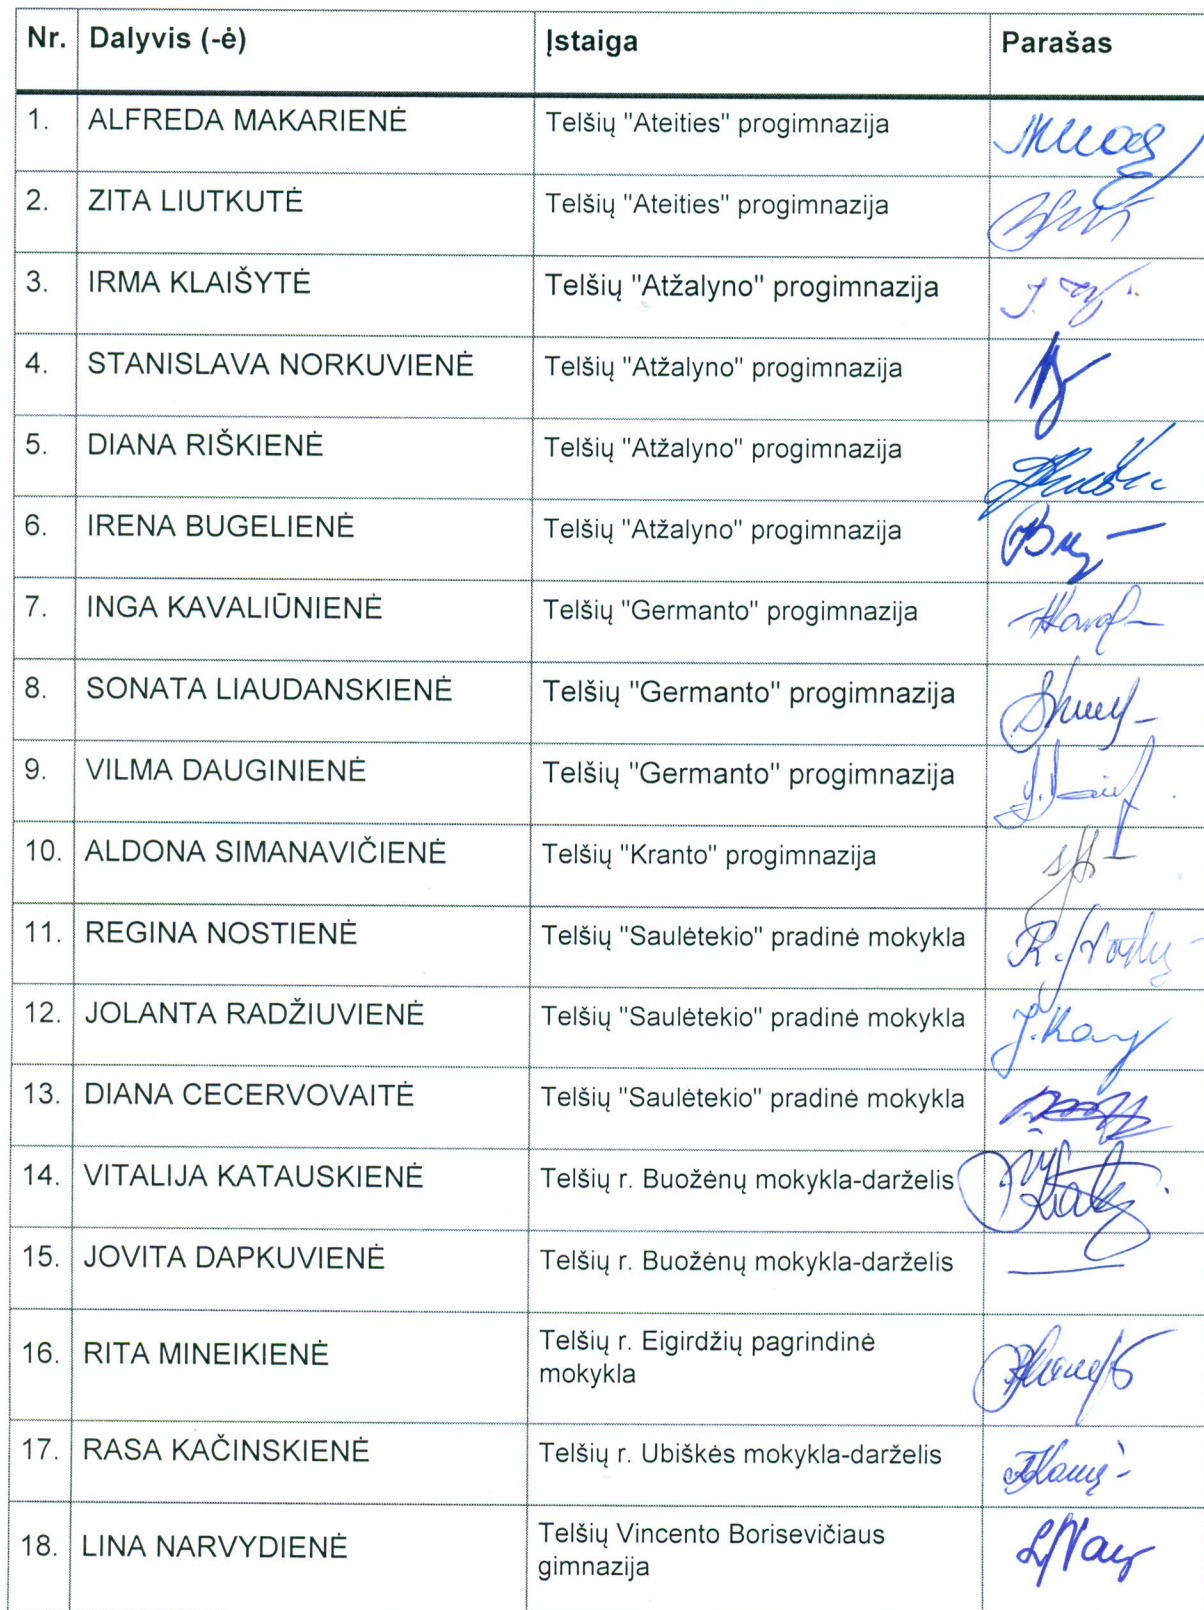 Nr. Dalyvis (-ė) Įstaiga Parašas
1. ALFREDA MAKARIENĖ Telšių "Ateities" progimnazija
2. ZITA LIUTKUTĖ Telšių "Ateities" progimnazija
3. IRMA KLAIŠYTĖ Telšių "Atžalyno" progimnazija
4. STANISLAVA NORKUVIENĖ Telšių "Atžalyno" progimnazija
5. DIANA RIŠKIENĖ Telšių "Atžalyno" progimnazija
6. IRENA BUGELIENĖ Telšių "Atžalyno" progimnazija
7. INGA KAVALIŪNIENĖ Telšių "Germanto" progimnazija
8. SONATA LIAUDANSKIENĖ Telšių "Germanto" progimnazija
9. VILMA DAUGINIENĖ Telšių "Germanto" progimnazija
10. ALDONA SIMANAVIČIENĖ Telšių "Kranto" progimnazija
11. REGINA NOSTIENĖ Telšių "Saulėtekio" pradinė mokykla
12. JOLANTA RADŽIUVIENĖ Telšių "Saulėtekio" pradinė mokykla
13. DIANA CECERVOVAITĖ Telšių "Saulėtekio" pradinė mokykla
14. VITALIJA KATAUSKIENĖ Telšių r. Buožėnų mokykla-darželis
15. JOVITA DAPKUVIENĖ Telšių r. Buožėnų mokykla-darželis
16. RITA MINEIKIENĖ Telšių r. Eigirdžių pagrindinė
mokykla
17. RASA KAČINSKIENĖ Telšių r. Ubiškės mokykla-darželis
18. LINA NARVYDIENĖ Telšių Vincento Borisevičiaus
gimnazija